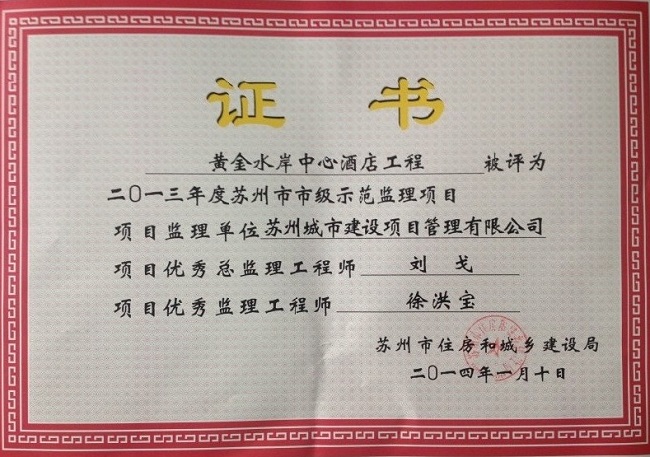 证书
黄金水岸中心酒店工程 被评为
二〇一三年度苏州市市级示范监理项目
项目监理单位 苏州城市建设项目管理有限公司
项目优秀总监理工程师 刘戈
项目优秀监理工程师 徐洪宝
苏州市住房和城乡建设局
二〇一四年一月十日